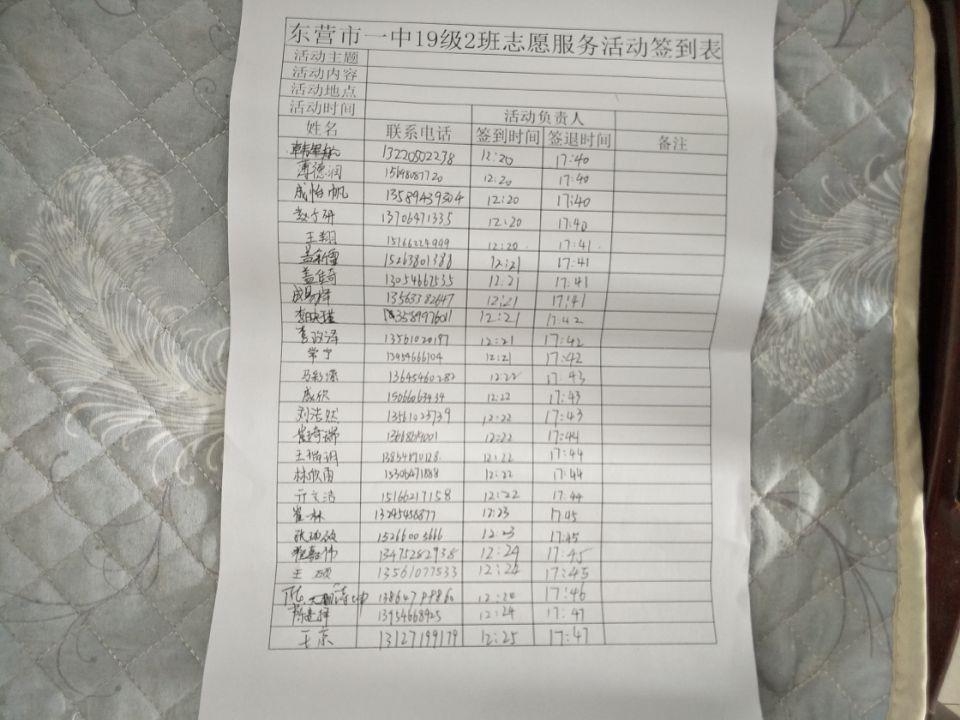 东营市一中19级2班志愿服务活动签到表
活动主题
活动内容
活动地点
活动时间 活动负责人
姓名 联系电话 签到时间 签退时间 备注
13220502238 12:20 17:40
薄德润 15698087720 12:20 17:40
成怡帆 13589439304 12:20 17:40
赵子研 13706471335 12:20 17:40
王翔 15166224999 12:20 17:41
盖新雷 15263801388 12:21 17:41
盖佳琦 13054667535 12:21 17:41
成易择 13563382647 12:21 17:41
李映瑾 13589976011 12:21 17:42
李政泽 13561020197 12:21 17:42
常宁 13954666104 12:21 17:42
马彩源 13645460282 12:22 17:43
成欣 15066063434 12:22 17:43
刘浩然 13561025739 12:22 17:43
崔琦瑞 12:22 17:44
12:22 17:44
林欣雨 15306471888 12:22 17:44
15166217158 12:22 17:44
崔林 12:23 17:45
15266003666 12:23 17:45
13475282938 12:24 17:45
王硕 13561077533 12:24 17:45
12:20 17:46
13954668925 12:24 17:47
王东 13127199179 12:25 17:47